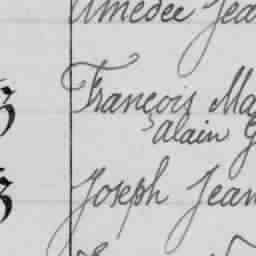 Amédée Jea
François Ma
alain G
Joseph Jean